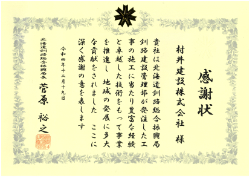 感謝状
村井建設株式会社 様
貴社は北海道釧路総合振興局
釧路建設管理部が発注した工
事の施工に当たり豊富な経験
と卓越した技術をもって事業
を推進し地域の発展に多大
な貢献をされました ここに
深く感謝の意を表します
令和四年十二月十九日
北海道釧路総合振興局長
菅原裕之